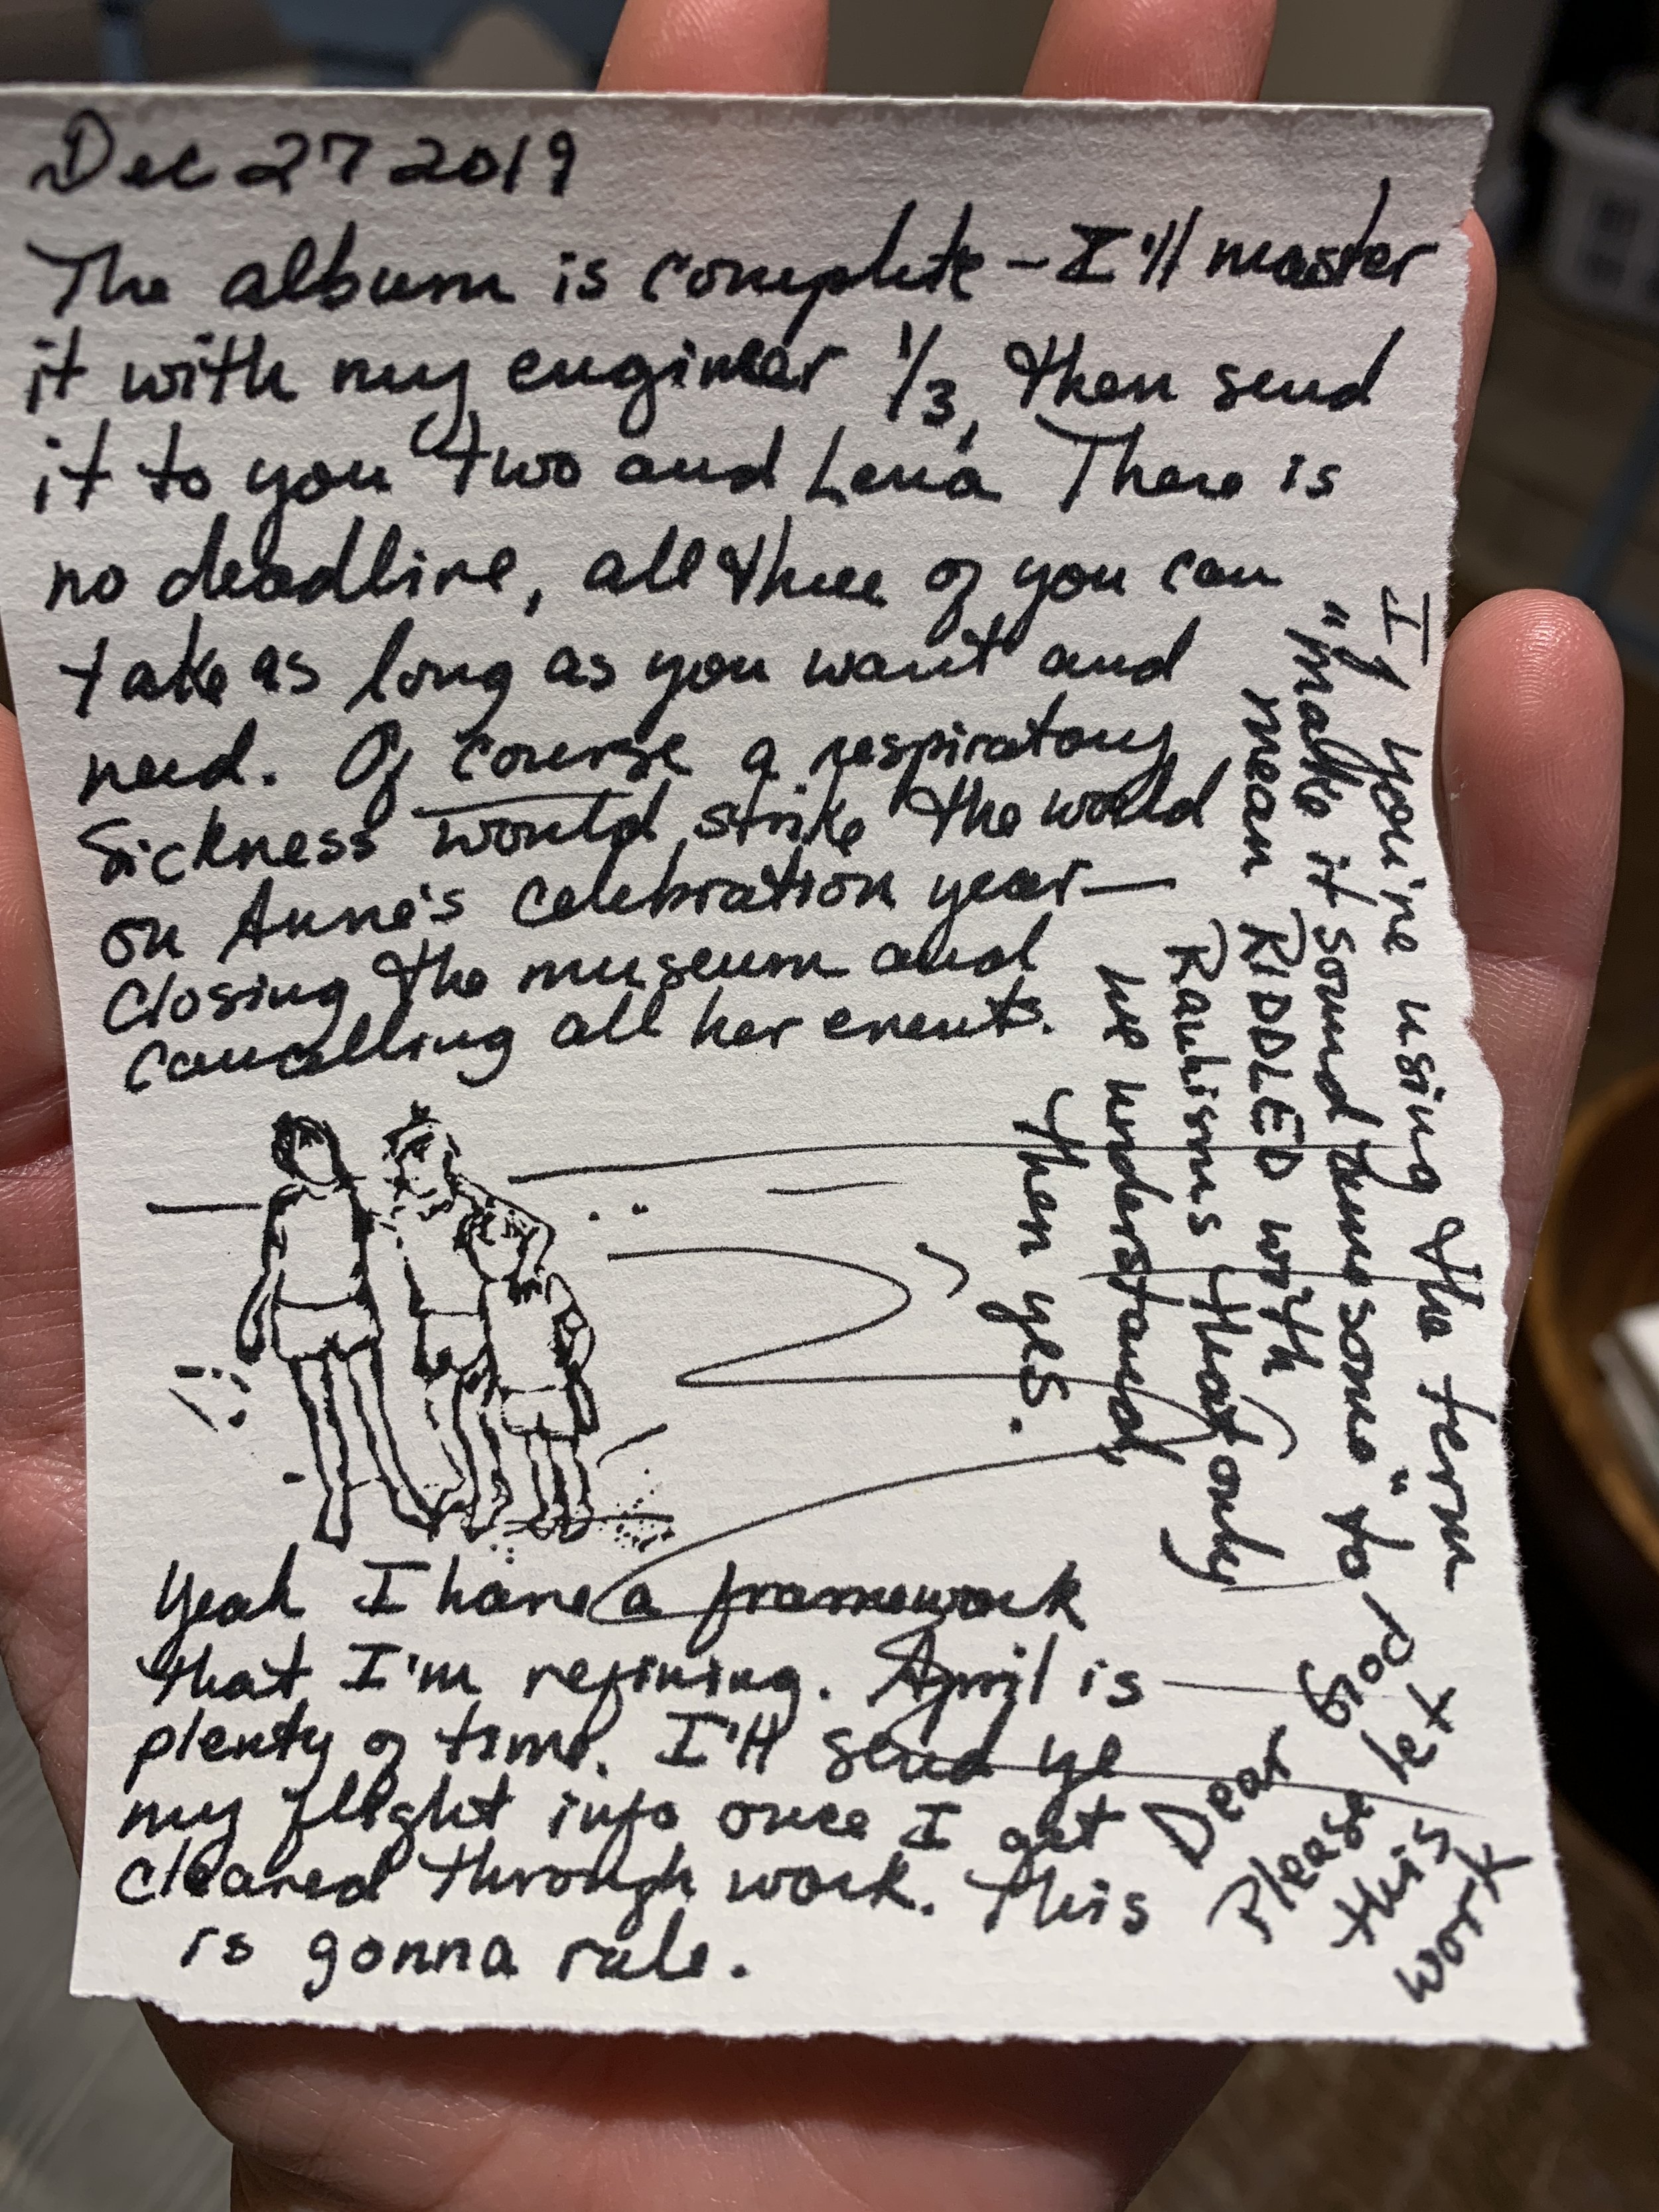 Dec 27 2019
The album is complete – I'll master
it with my engineer 1/3, then send
it to you two and Lena. There is
no deadline, all three of you can
take as long as you want and
need. Of course a respiratory
sickness would strike the world
on Anne's celebration year—
closing the museum and
cancelling all her events.
If you're using the term
"make it sound awesome" to
mean RIDDLED with
Rauhisms that only
we understand,
then yes.
Yeah I have a framework
that I'm refining. April is
plenty of time. I'll send ye
my flight info once I get
cleared through work. This
is gonna rule.
Dear God
Please let
this
work